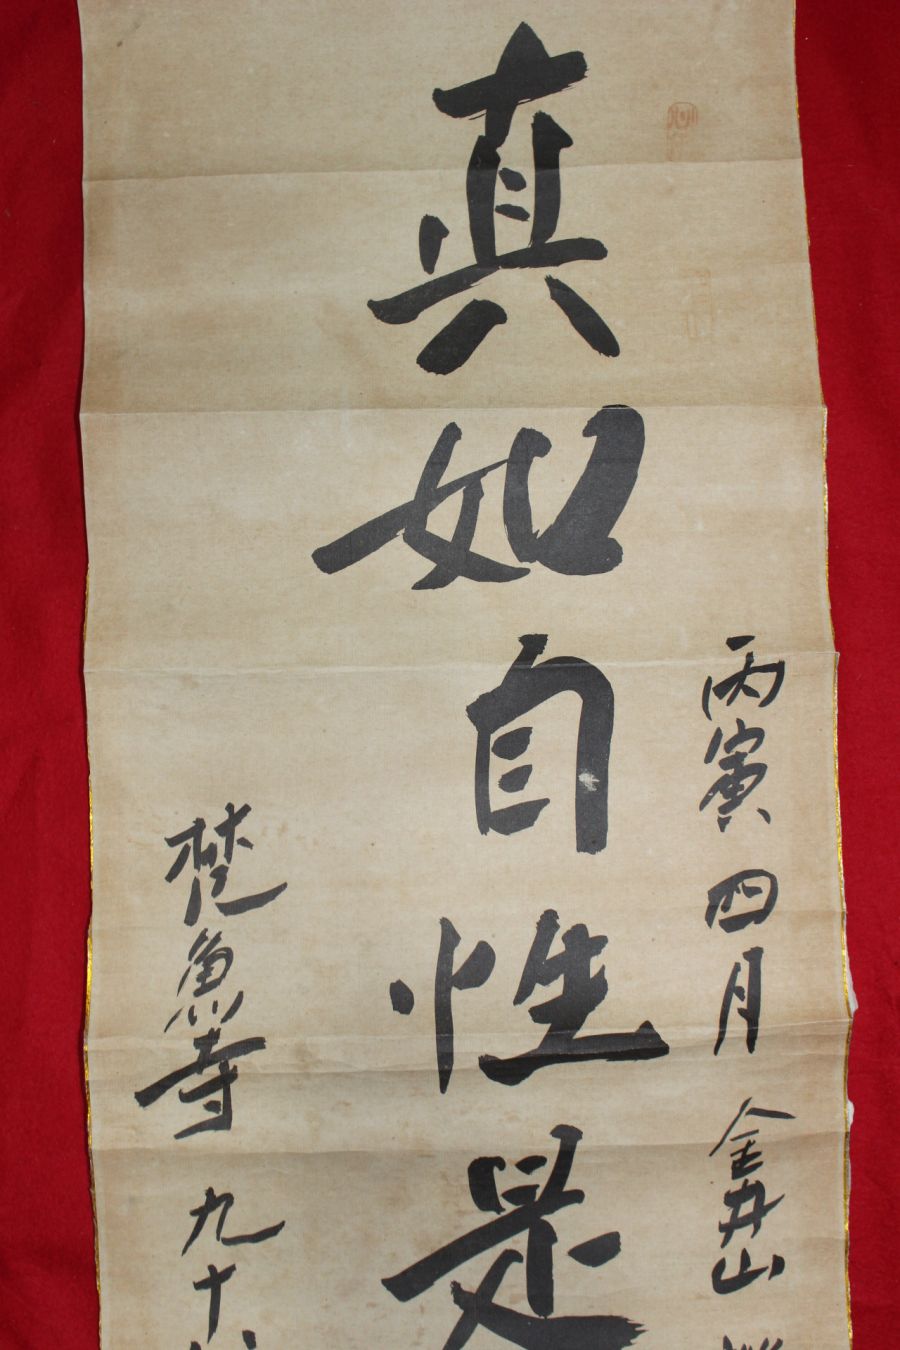 丙寅四月金井山
真如自性是
梵魚寺九十